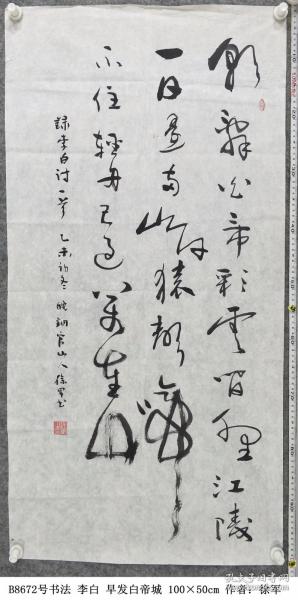 朝辭白帝彩雲間千里江陵
一日還两岸猿聲啼
不住輕舟已過萬重山
錄李白诗一首 乙未初冬 皖銅官山人徐军书
B8672号书法 李白 早发白帝城 100×50cm 作者：徐军